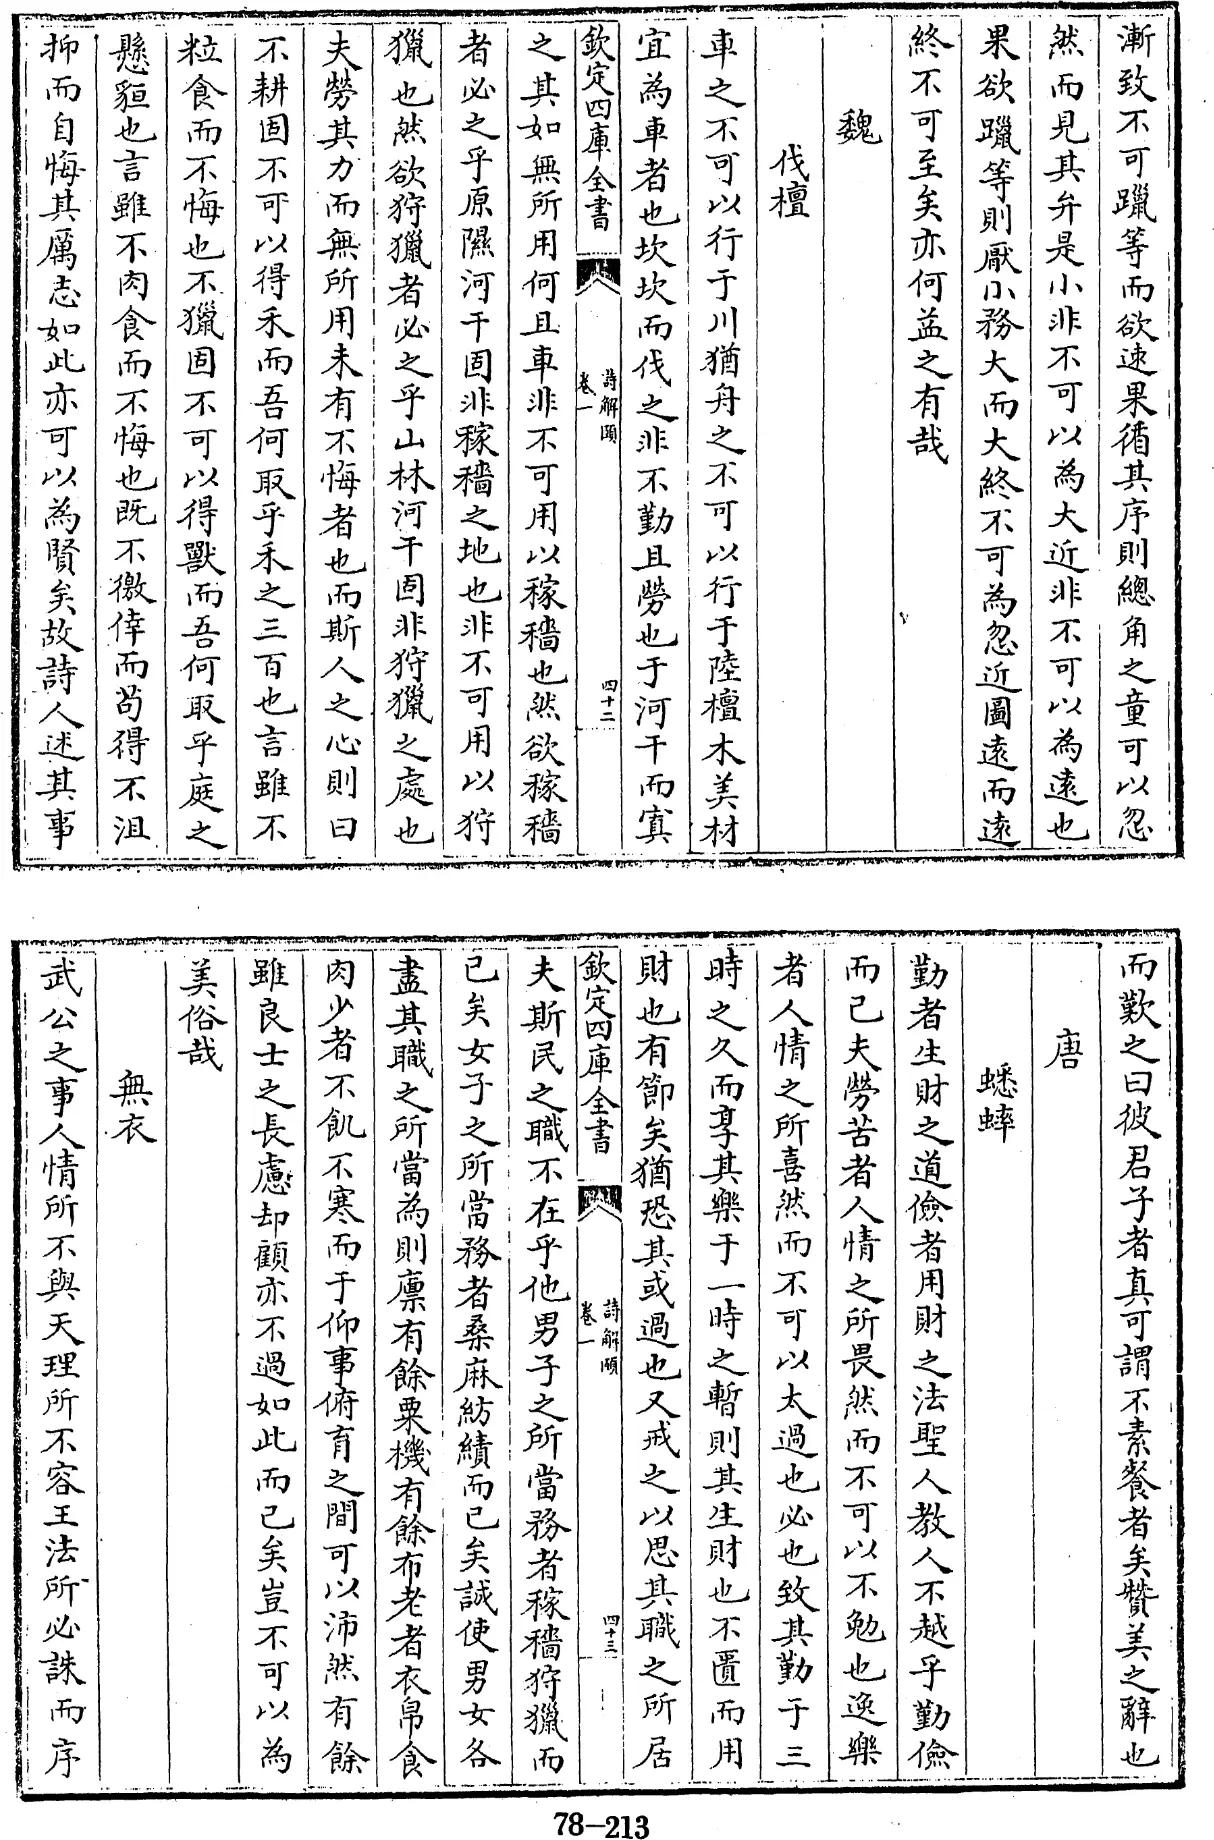 漸致不可躐等而欲速果循其序則總角之童可以忽
然而見其弁是小非不可以為大近非不可以為遠也
果欲躐等則厭小務大而大終不可為忽近圖遠而遠
終不可至矣亦何益之有哉
魏
伐檀
車之不可以行于川猶舟之不可以行于陸檀木美材
宜為車者也坎坎而伐之非不勤且勞也于河干而寘
欽定四庫全書
詩解頤
卷一
四十二
之其如無所用何且車非不可用以稼穡也然欲稼穡
者必之乎原隰河干固非稼穡之地也非不可用以狩
獵也然欲狩獵者必之乎山林河干固非狩獵之處也
夫勞其力而無所用未有不悔者也而斯人之心則曰
不耕固不可以得禾而吾何取乎禾之三百也言雖不
粒食而不悔也不獵固不可以得獸而吾何取乎庭之
懸貆也言雖不肉食而不悔也既不徼倖而茍得不沮
抑而自悔其厲志如此亦可以為賢矣故詩人述其事
而歎之曰彼君子者真可謂不素餐者矣贊美之辭也
唐
蟋蟀
勤者生財之道儉者用財之法聖人教人不越乎勤儉
而已夫勞苦者人情之所畏然而不可以不勉也逸樂
者人情之所喜然而不可以太過也必也致其勤于三
時之久而享其樂于一時之暫則其生財也不匱而用
財也有節矣猶恐其或過也又戒之以思其職之所居
欽定四庫全書
詩解頤
卷一
四十三
夫斯民之職不在乎他男子之所當務者稼穡狩獵而
已矣女子之所當務者桑麻紡績而已矣誠使男女各
盡其職之所當為則廪有餘粟機有餘布老者衣帛食
肉少者不飢不寒而于仰事俯育之間可以沛然有餘
雖良士之長慮却顧亦不過如此而已矣豈不可以為
美俗哉
無衣
武公之事人情所不與天理所不容王法所必誅而序
78-213